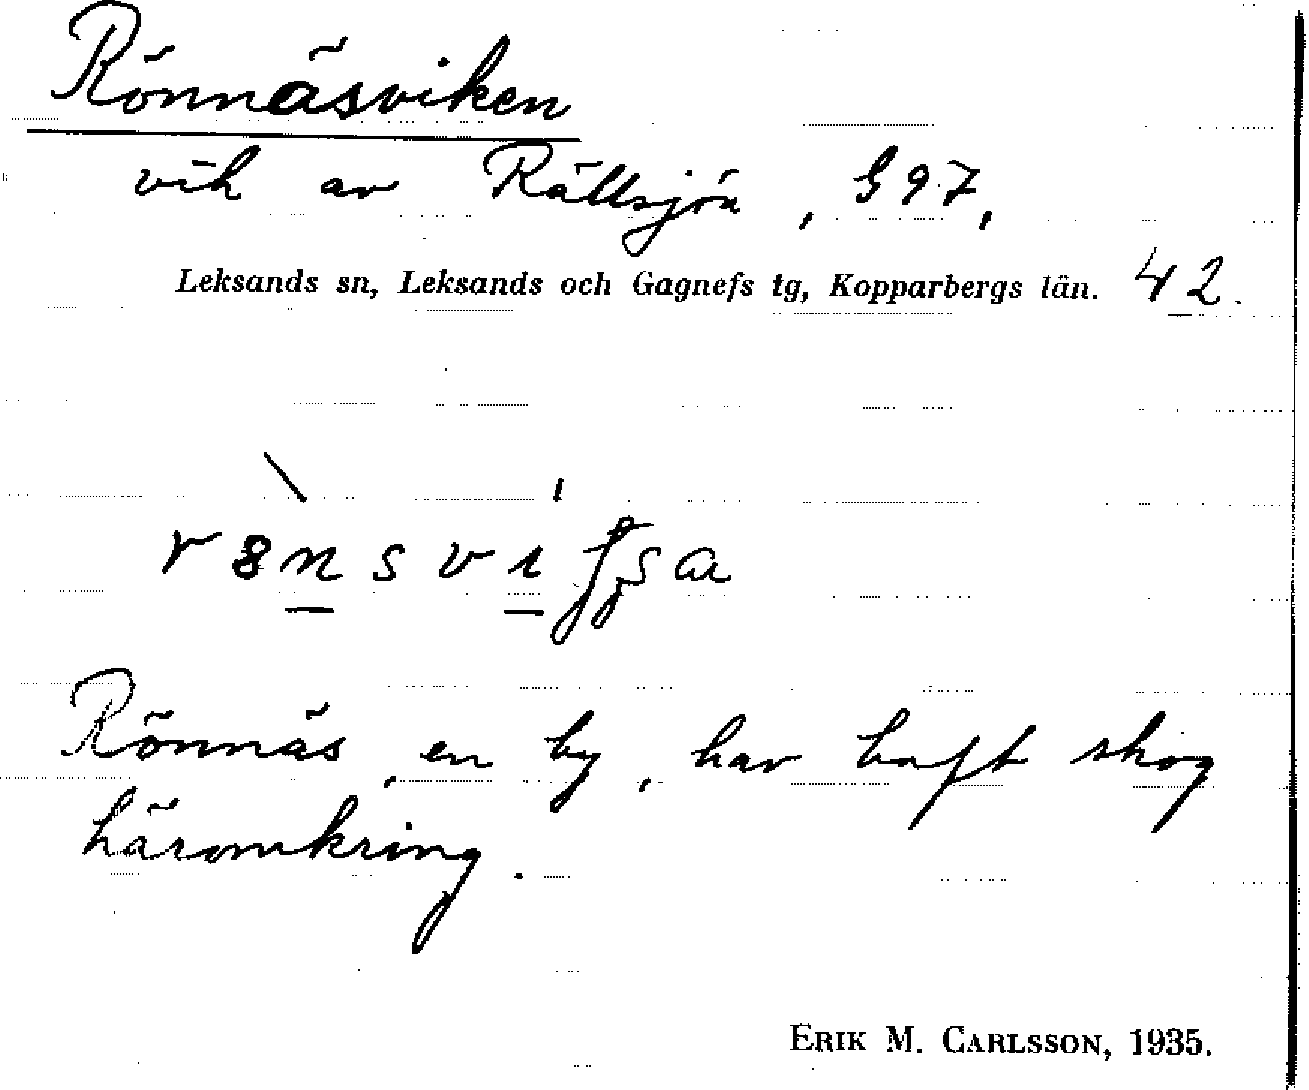 Rönnäsviken
vik av Rällsjön, G 97,
Leksands sn, Leksands och Gagnefs tg, Kopparbergs län. 42.
Rönnäs, en by, har haft skog
häromkring.
ERIK M. CARLSSON, 1935.